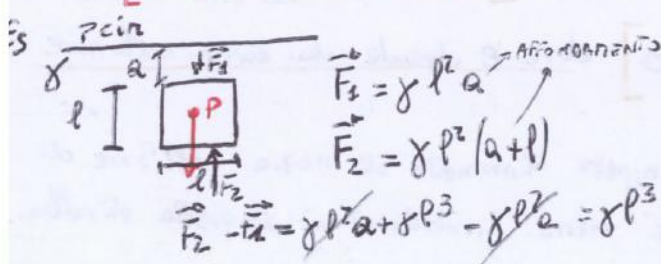 Es PCIR
γ a F⃗1
l P
l F⃗2
F⃗1 = γ l² a AFFONDAMENTO
F⃗2 = γ l² (a+l)
F⃗2 - F⃗1 = γl²a + γl³ - γl²a = γl³